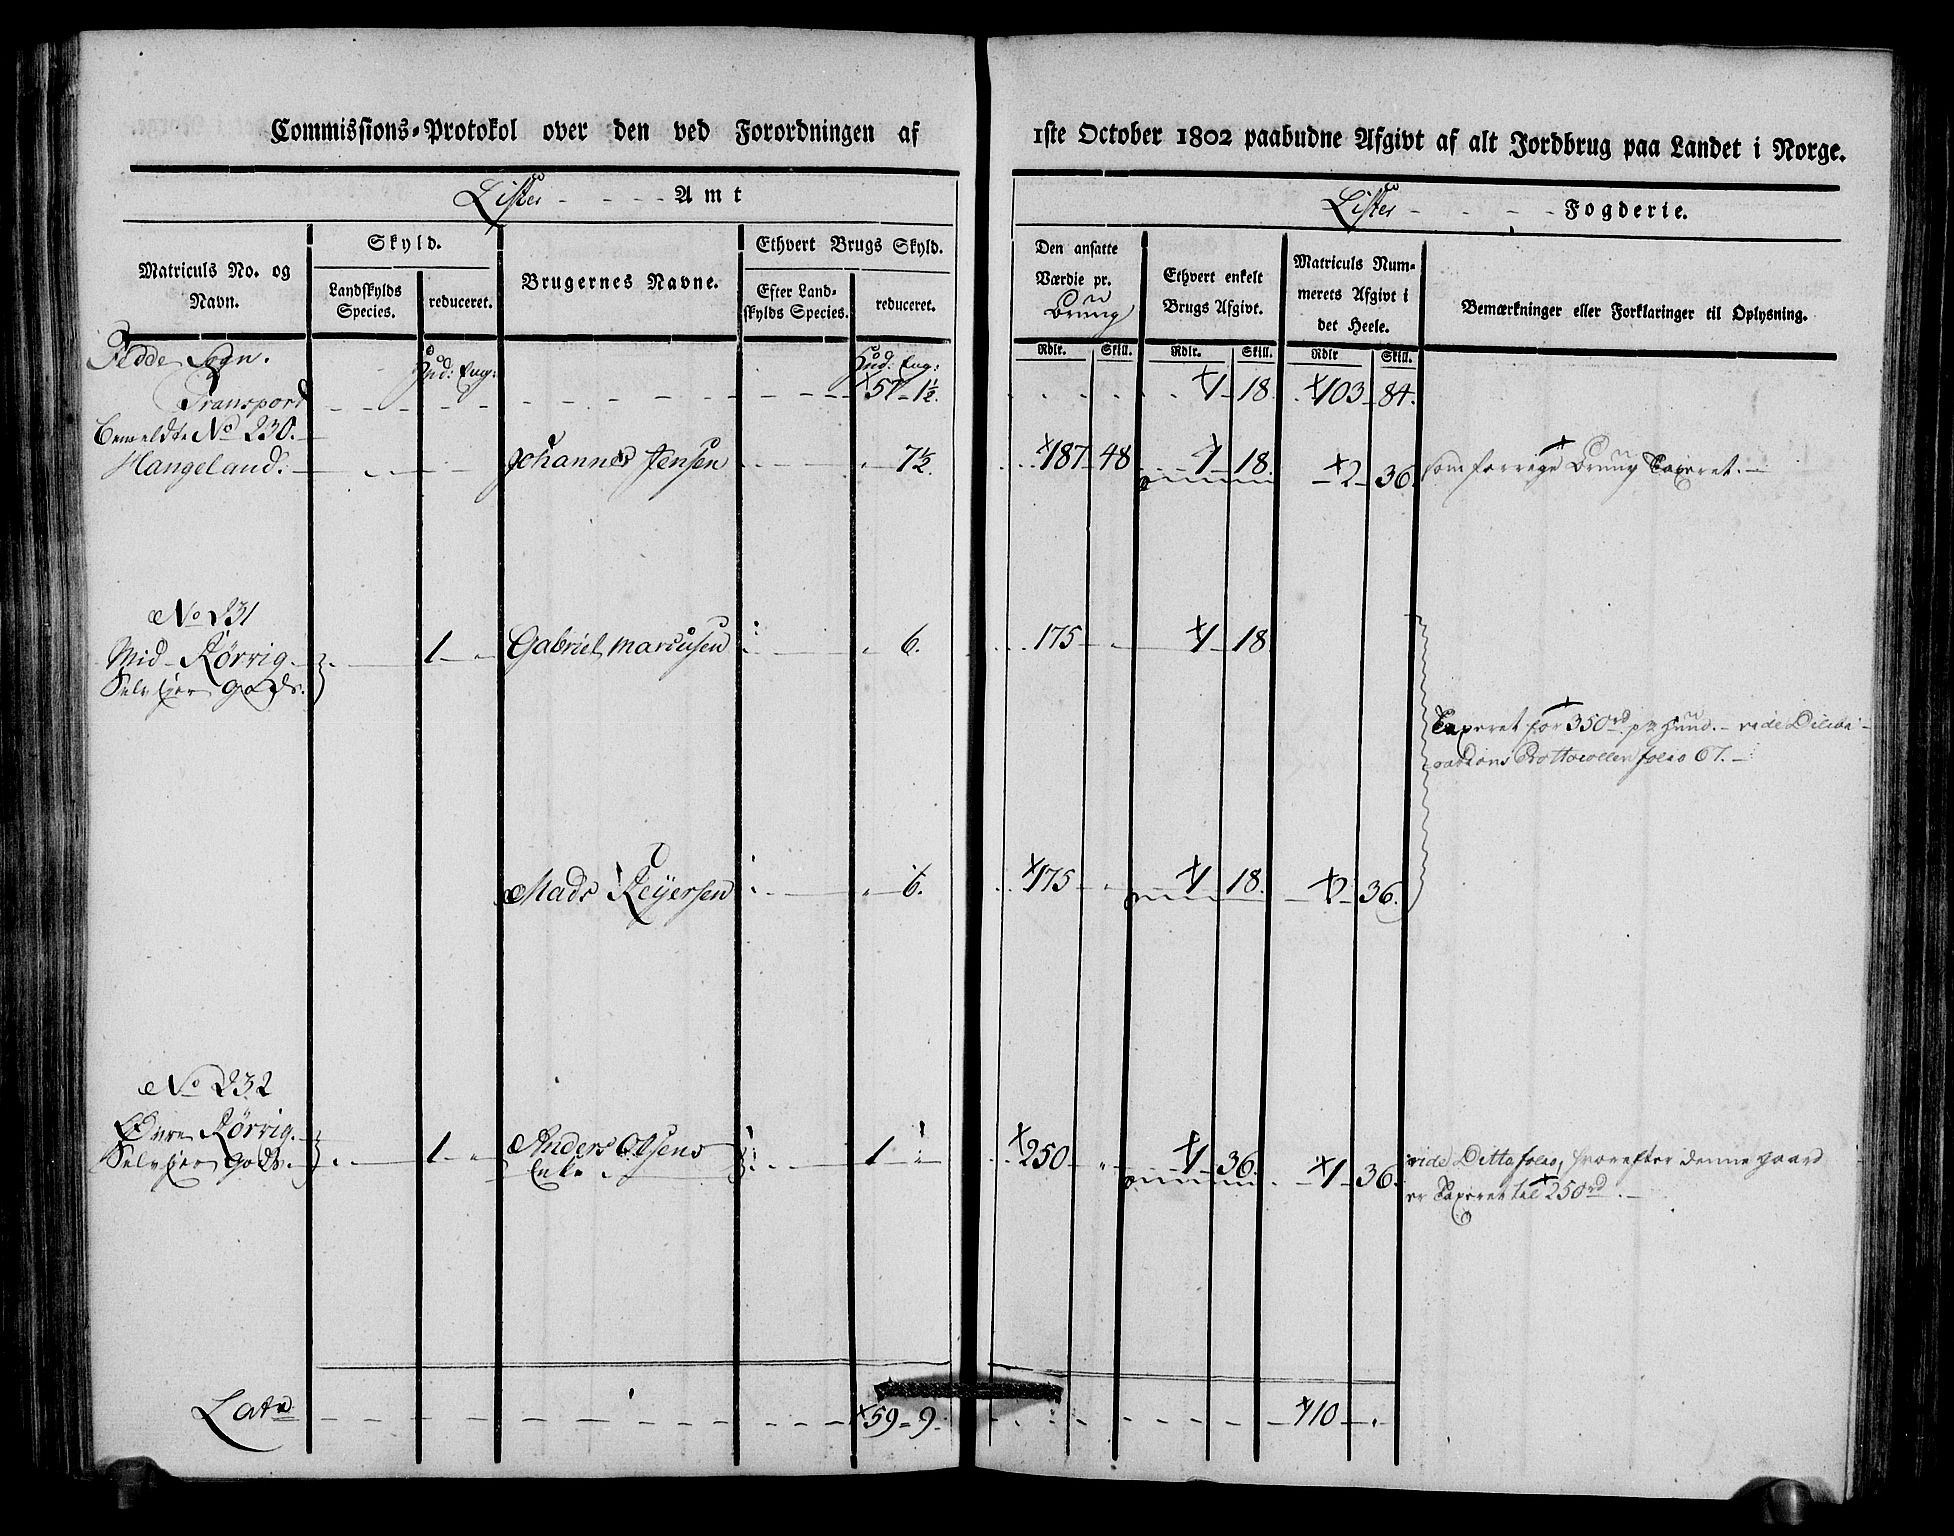 Commissions-Protokol over den ved Forordningen af 1ste October 1802 paabudne Afgivt af alt Jordbrug paa Landet i Norge.
Lister - - - - Amt
Lister - - - - Fogderie.
Matriculs No. og Navn.
Skyld.
Landskylds Species.
reduceret.
Brugernes Navne.
Ethvert Brugs Skyld.
Efter Landskylds Species.
reduceret.
Den ansatte Værdie pr. Brug
Ethvert enkelt Brugs Afgivt.
Matriculs Nummerets Afgivt i det Heele.
Bemærkninger eller Forklaringer til Oplysning.
Rdlr. Skill. Rdlr. Skill. Rdlr Skill.
Fedde Sogn. Hud: Eng: Hud: Eng:
Transport 57 - 1½. 1 18. 103 - 84.
Bemeldte No 230.
Hangeland. Johannes Jensen 7½. 187 - 48 1 18. 2 36. som forrige Brug Taxeret. -
No 231
Mid - Rørrig. 1 - " Gabriel Marcusen " 6. 175 - " 1 18
Selvejer gods.
Taxeret for 350 rd. pr Hud. - vide Dilive-
rations Prottocollen folio 67. -
Mads Reyersen " 6. 175 - " 1 18. 2 36.
No 232
Øvre Rørrig. 1 - " Anders Olsens 1 250 - " 1 36. 1 - 36. vide Ditto folio, hvorefter denne gaard
Selvejer gods. Enke er Taxeret til 250 rd. -
Lat 59 - 9. 110 - .